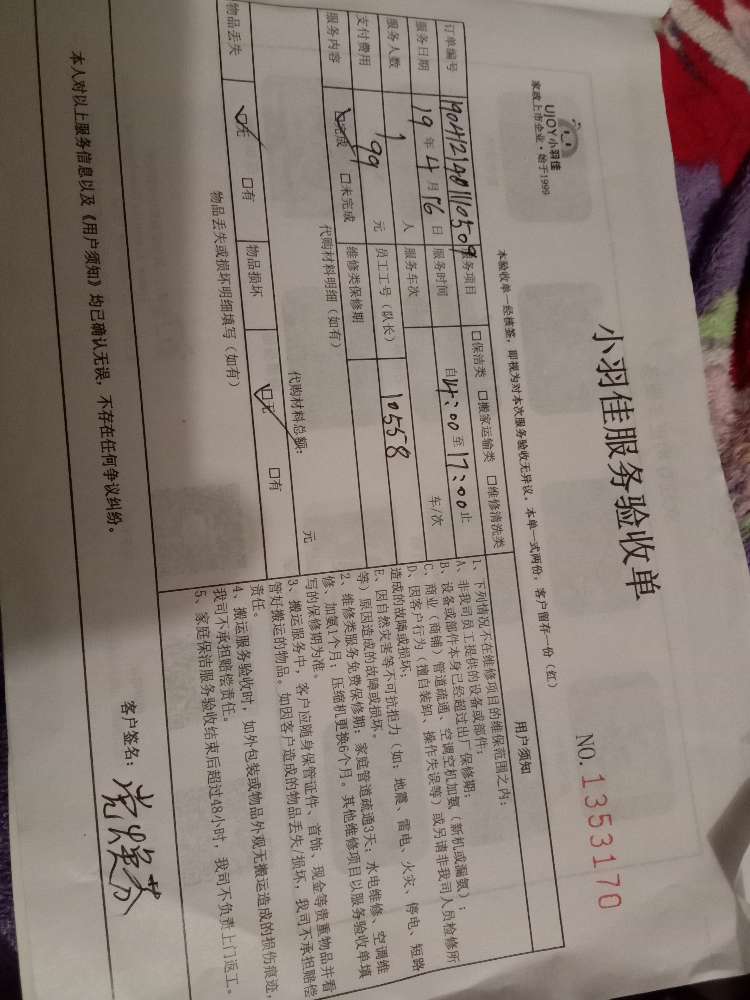 UJOY小羽佳
家政上市企业·始于1999
小羽佳服务验收单
NO.1353170
本验收单一经核签,即视为对本次服务验收无异议,本单一式两份,客户留存一份(红)
订单编号 服务项目 □保洁类 □搬家运输类 □维修清洗类
服务日期 19 年 4 月 16 日 服务时间 自 14:00 至 17:00 止
服务人数 1 人 服务车次 车/次
支付费用 199 元 员工工号(队长) 10558
服务内容 ☑完成 □未完成 维修类保修期
代购材料明细(如有)
代购材料总额: 元
物品丢失 ☑无 □有 物品损坏 ☑无 □有
物品丢失或损坏明细填写(如有)
用户须知
1、下列情况不在维修项目的维保范围之内:
A、非我司员工提供的设备或部件;
B、设备或部件本身已经超过出厂保修期;
C、商业(商铺)管道疏通、空调空机加氨(新机或漏氨);
D、因客户行为(擅自装卸、操作失误等)或另请非我司人员检修所
造成的故障或损坏;
E、因自然灾害等不可抗拒力(如:地震、雷电、火灾、停电、短路
等)原因造成的故障或损坏。
2、维修类服务免费保修期:家庭管道疏通3天;水电维修、空调维
修、加氨1个月;压缩机更换6个月。其他维修项目以服务验收单填
写的保修期为准。
3、搬运服务中,客户应随身保管证件、首饰、现金等贵重物品并看
管好搬运的物品。如因客户造成的物品丢失/损坏,我司不承担赔偿
责任。
4、搬运服务验收时,如外包装或物品外观无搬运造成的损伤痕迹,
我司不承担赔偿责任。
5、家庭保洁服务验收结束后超过48小时,我司不负责上门返工。
本人对以上服务信息以及《用户须知》均已确认无误,不存在任何争议纠纷。
客户签名: